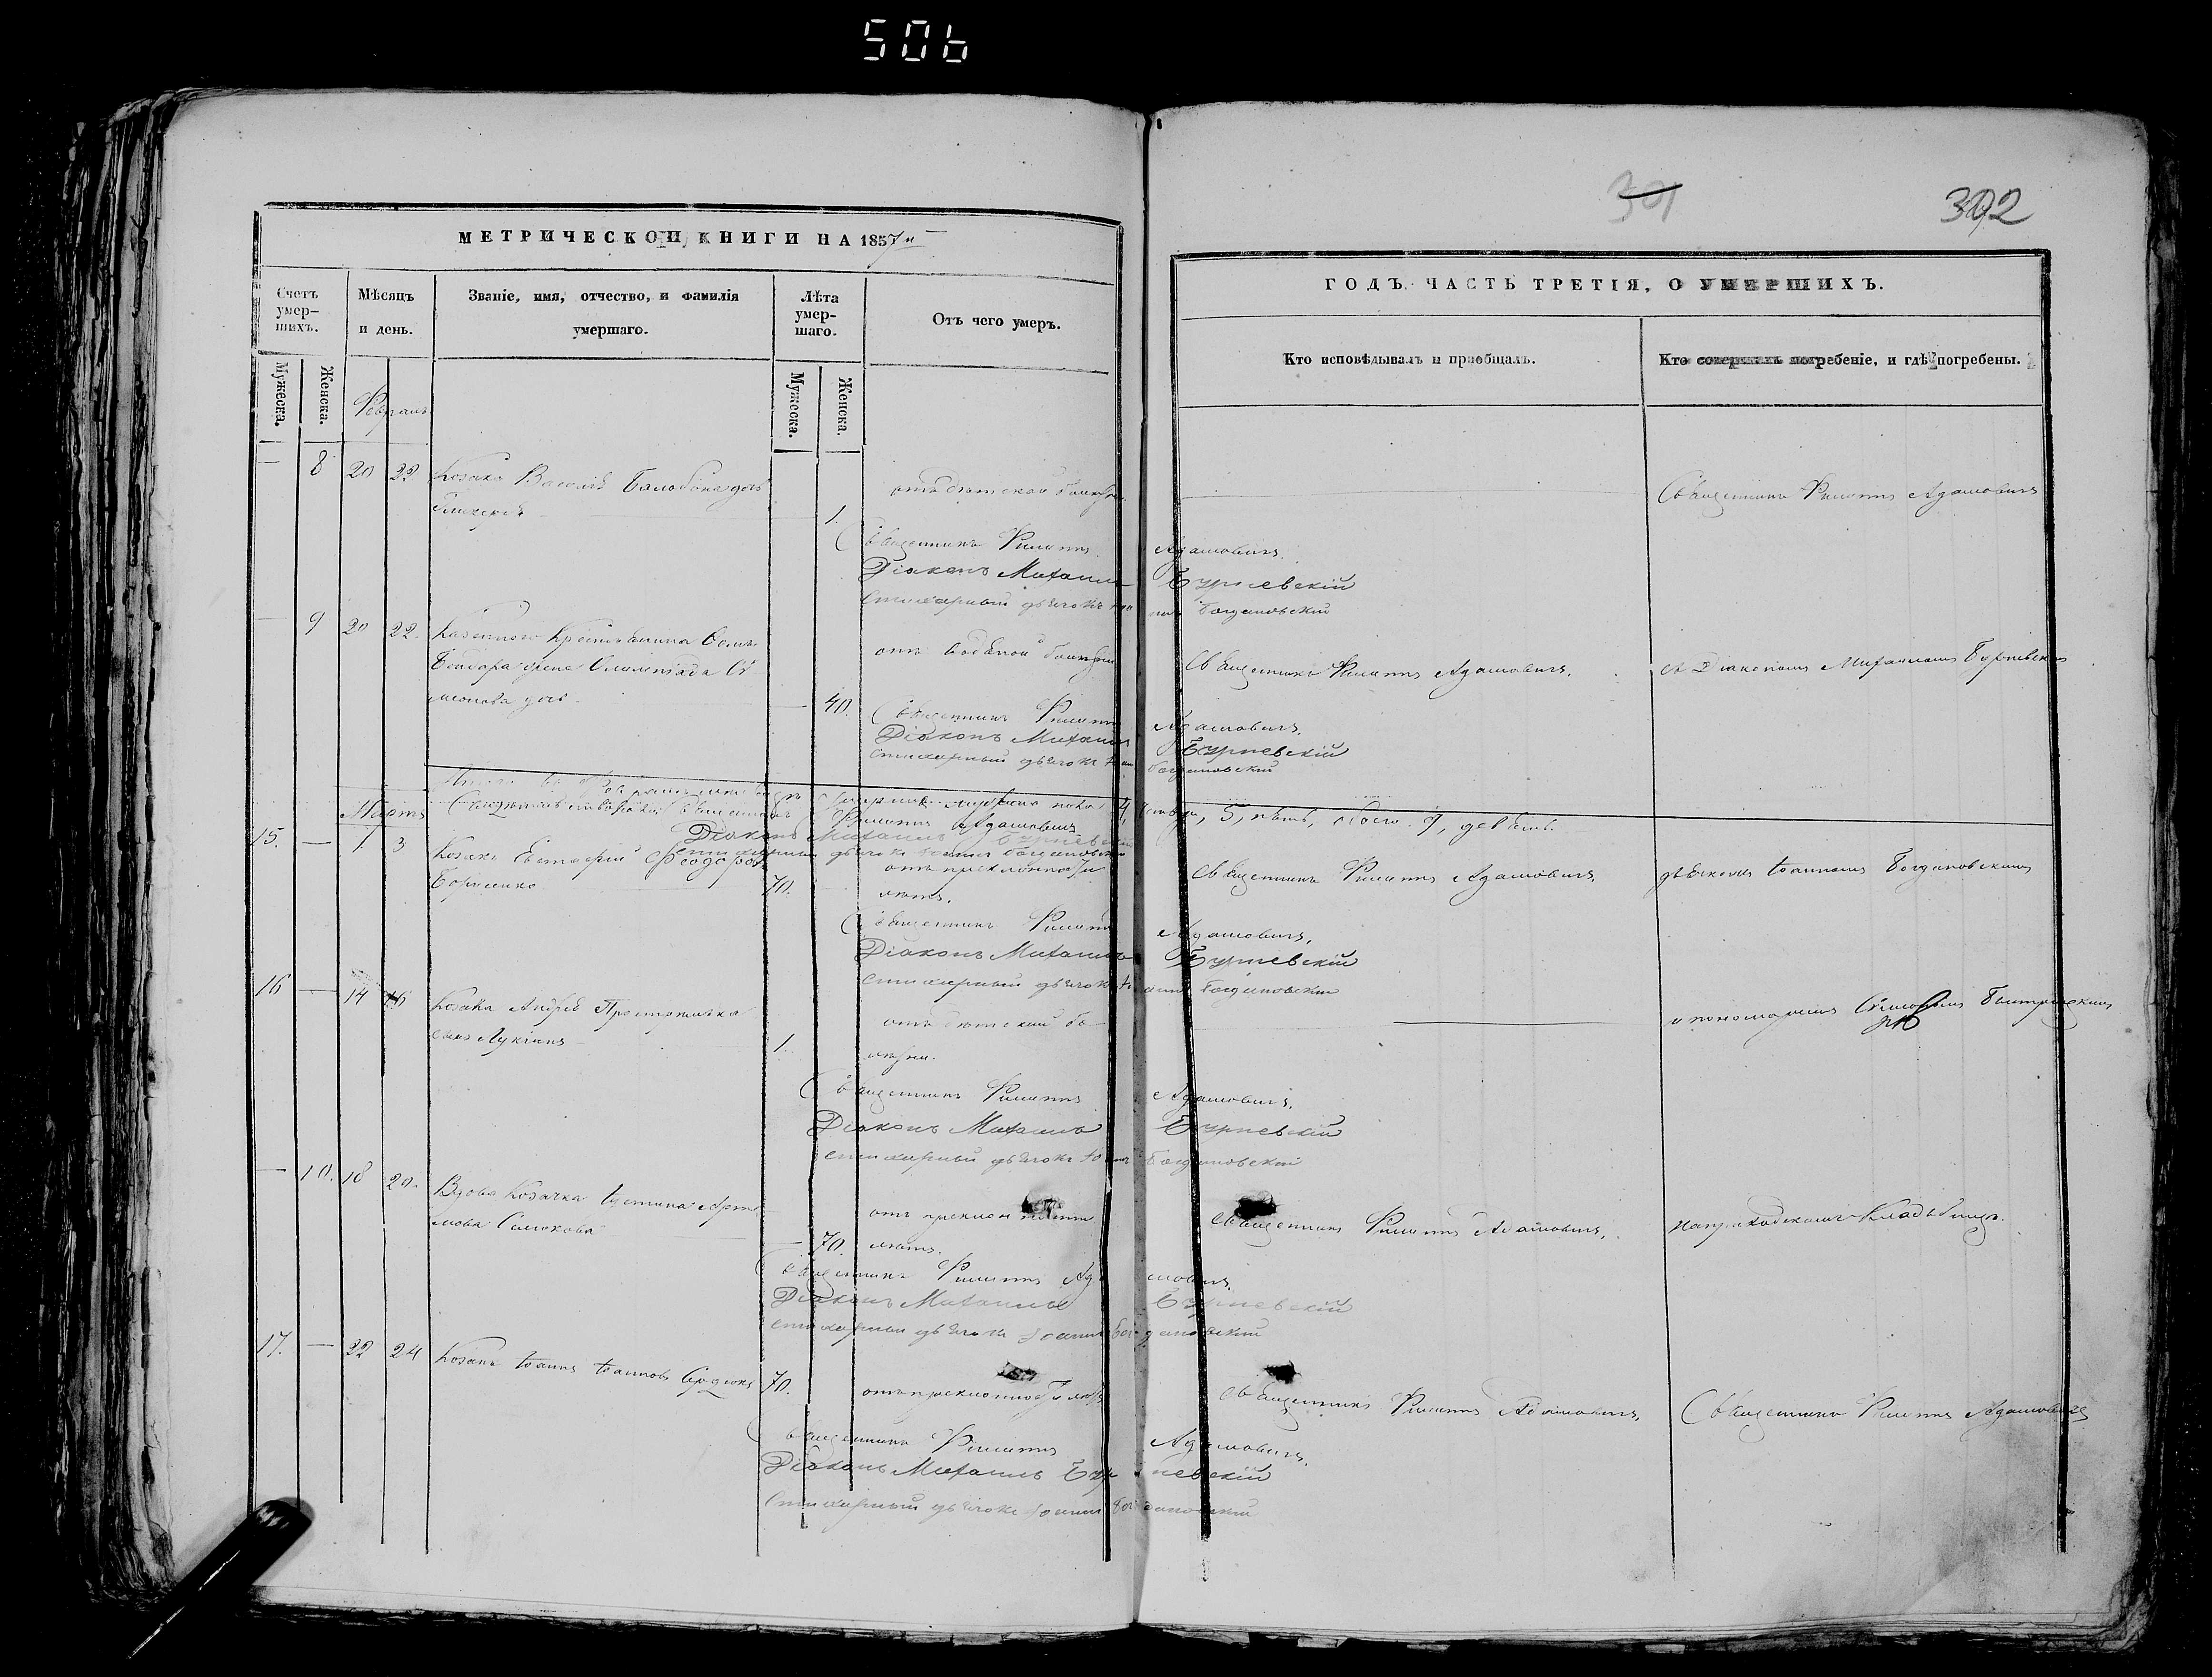 506
301
302
МЕТРИЧЕСКОЙ КНИГИ НА 1857й
ГОДЪ. ЧАСТЬ ТРЕТІЯ, О УМЕРШИХЪ.
Счетъ умер-
шихъ.
Мѣсяцъ
и день.
Званіе, имя, отчество, и фамилія
умершаго.
Лѣта
умер-
шаго.
Отъ чего умеръ.
Кто исповѣдывалъ и пріобщалъ.
Кто совершалъ погребеніе, и гдѣ погребены.
Мужеска.
Женска.
Мужеска.
Женска.
Февраль
— 8 20 22 Козака Василія дочь
1.
отъ дѣтской болѣзни
Священникъ Филиппъ Адамовичъ
Священникъ Филиппъ Адамовичъ.
Діаконъ Михаилъ Бурневскій
Стихарный дьячокъ Іоаннъ Богдановскій
— 9 20 22. Казенного Крестьянина
жена Олимпіада Си
меонова дочь
— 40.
отъ водяной болѣзни
Священникъ Филиппъ Адамовичъ.
съ Діакономъ Михаиломъ Бурневскимъ
Священникъ Филиппъ Адамовичъ.
Діаконъ Михаилъ Бурневскій
Стихарный дьячокъ Іоаннъ Богдановскій
4, женска, 5, пять, обоего. 9, девять.
Священникъ Филиппъ Адамовичъ
Діаконъ Михаилъ Бурневскій
Стихарный дьячокъ Іоаннъ Богдановскій
Мартъ
15. — 1 3 Козакъ Евстафій Феодоровъ
Борисенко
70.
отъ преклонности
лѣтъ.
Священникъ Филиппъ Адамовичъ.
дьячкомъ Іоанномъ Богдановскимъ
Священникъ Филиппъ Адамовичъ.
Діаконъ Михаилъ Бурневскій
Стихарный дьячокъ Іоаннъ Богдановскій
16 — 14 16 Козака Андрея
сынъ Лукіанъ
1.
отъ дѣтской бо-
лѣзни.
и пономаремъ
Священникъ Филиппъ Адамовичъ.
Діаконъ Михаилъ Бурневскій
Стихарный дьячокъ Іоаннъ Богдановскій
— 10. 18 20. Вдова Козачка Устина Арте
мова
— 70.
отъ преклонности
лѣтъ.
Священникъ Филиппъ Адамовичъ.
на приходскомъ Кладбищѣ.
Священникъ Филиппъ Адамовичъ
Діаконъ Михаилъ Бурневскій
Стихарный дьячокъ Іоаннъ Богдановскій
17. — 22 24 Козакъ Іоаннъ Іоанновъ Сердюкъ
70.
отъ преклонности лѣтъ
Священникъ Филиппъ Адамовичъ.
Священникъ Филиппъ Адамовичъ
Священникъ Филиппъ Адамовичъ.
Діаконъ Михаилъ Бурневскій
Стихарный дьячокъ Іоаннъ Богдановскій